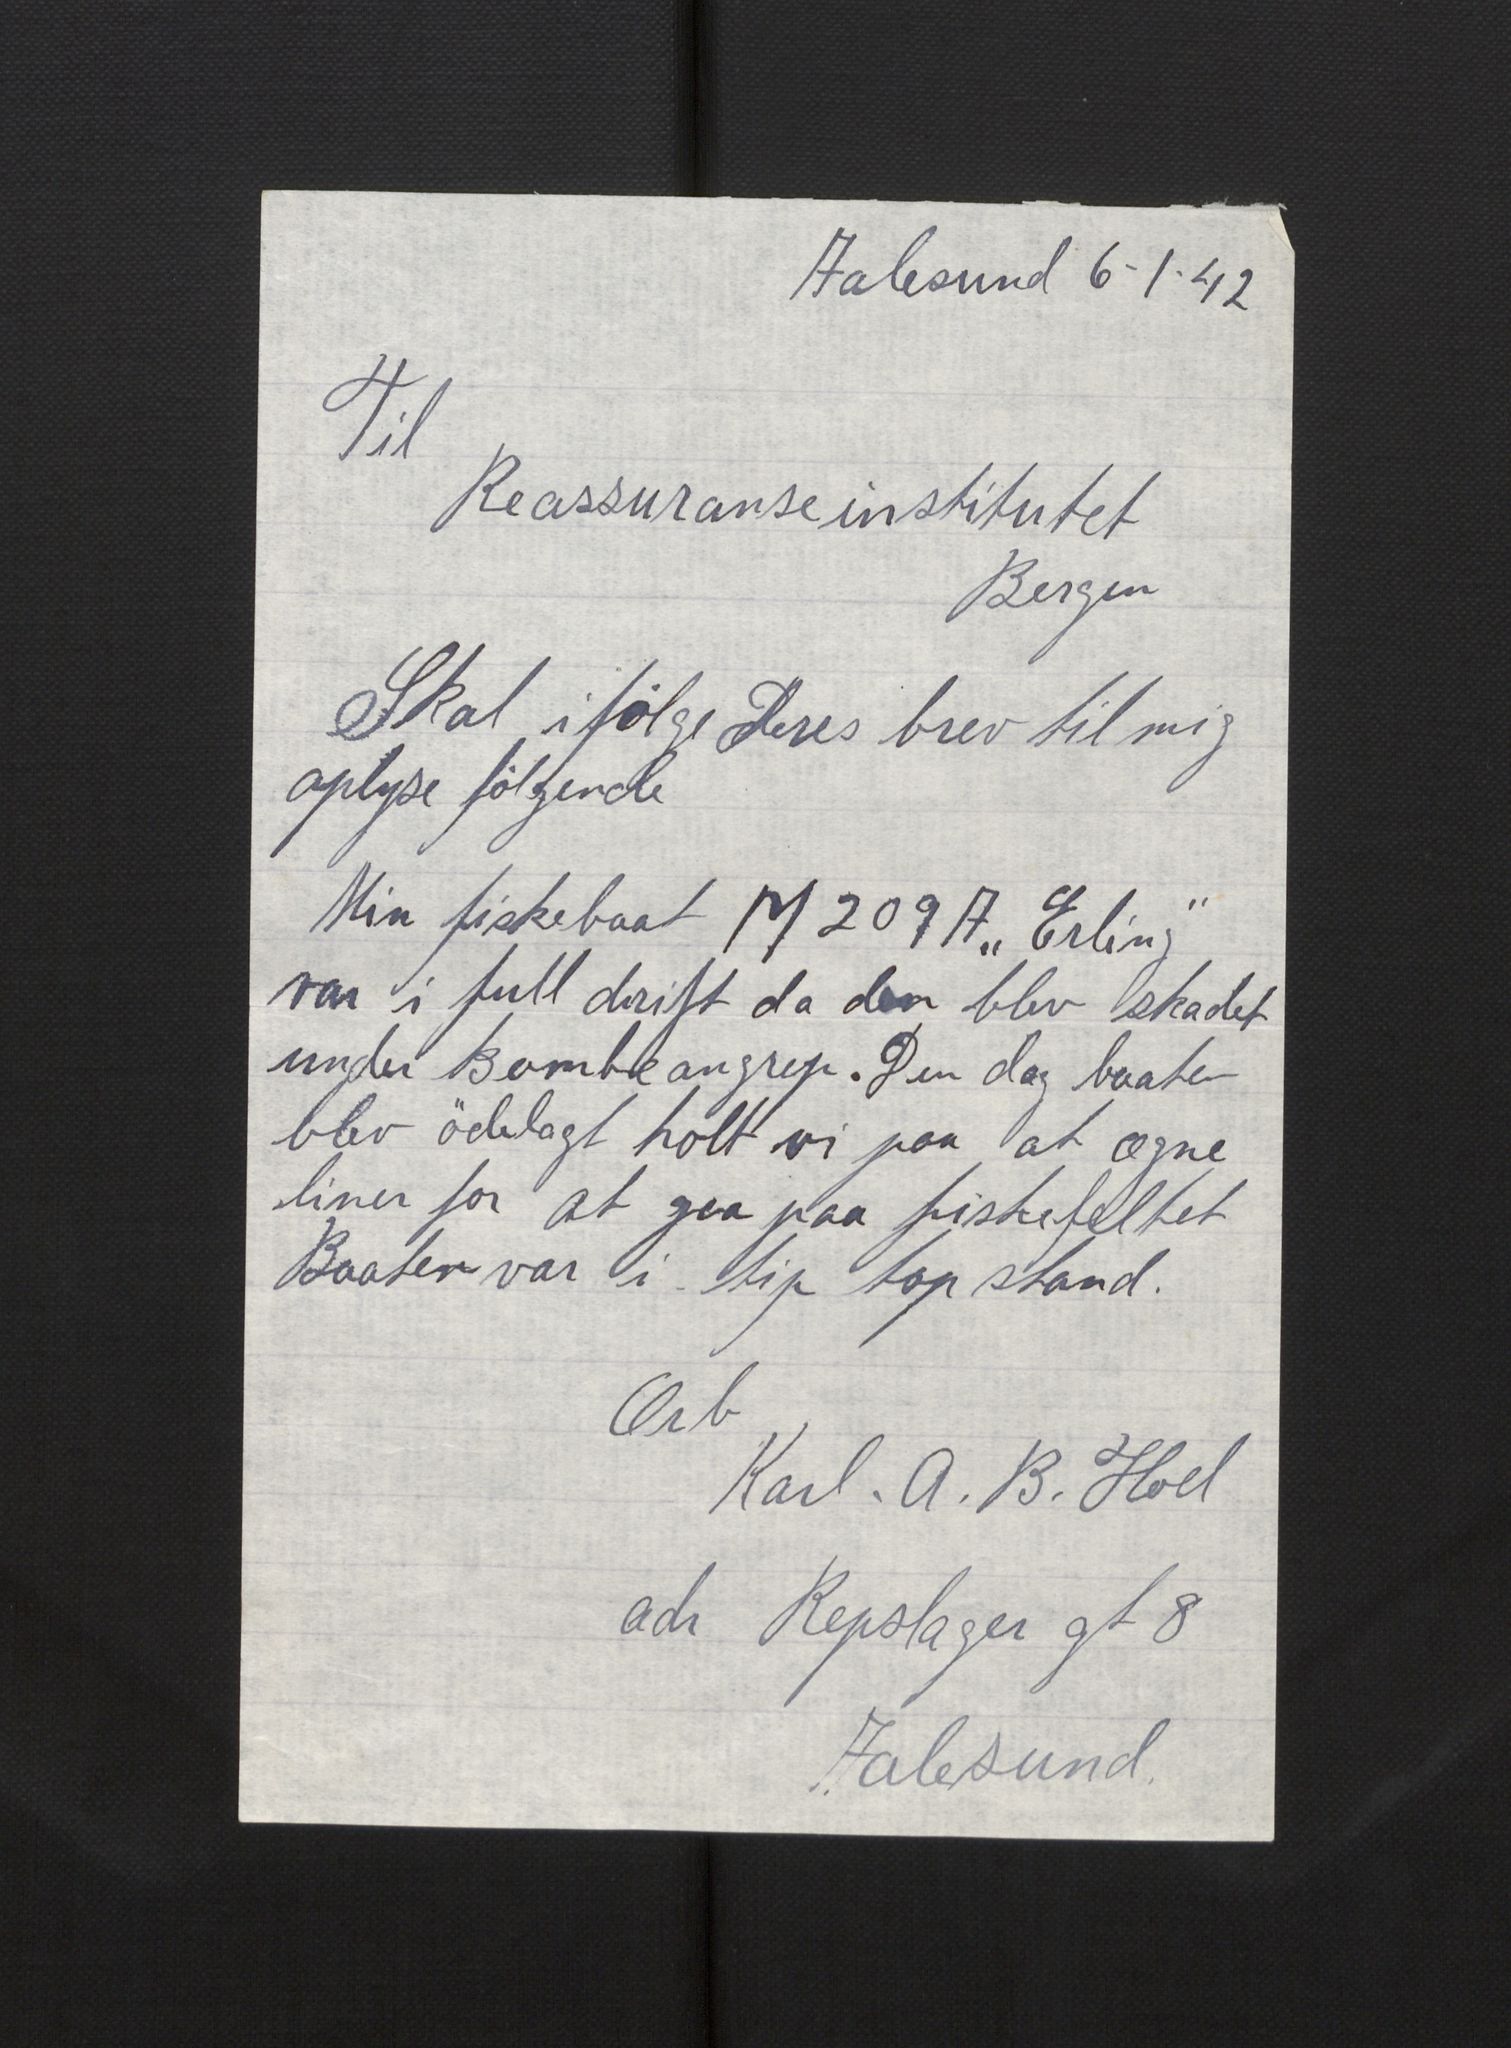 Aalesund 6-1-42
Til
Reassuranseinstitutet
Bergen
Skal ifølge Deres brev til mig
oplyse følgende
Min fiskebaat M 209 A „Erling"
var i full drift da den blev skadet
under Bombeangrep. Den dag baaten
blev ödelagt holt vi paa at egne
liner for at gaa paa fiskefeltet
Baaten var i tip top stand.
Erb
Karl. A. B. Hoel
adr Repslager gt 8
Aalesund.